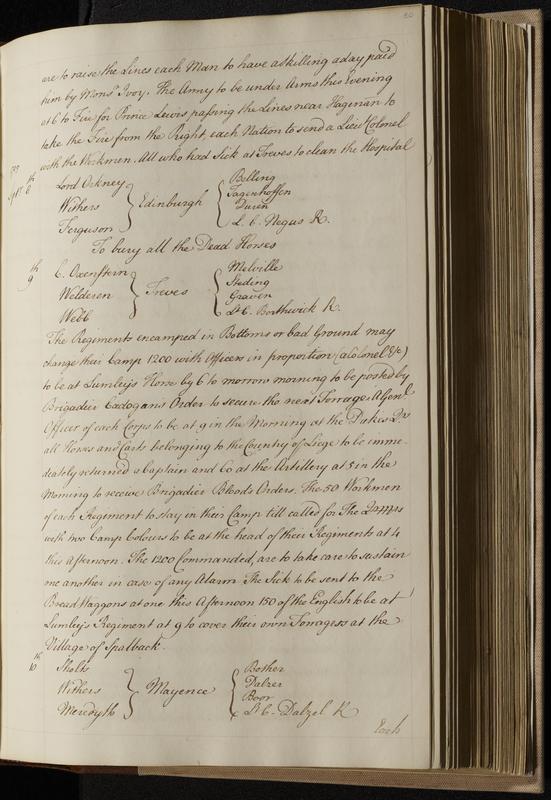 are to raise the Lines each Man to have a skilling a day paid
him by Monsr Ivoy. The Army to be under Arms this Evening
at 6 to Fire for Prince Lewis passing the Lines near Hagenan to
take the Fire from the Right, each Nation to send a Lieut Colonel
with the Workmen. All who had Sick at Treves to clean the Hospital
8th Lord Orkney
Withers
Ferguson
Edinburgh
Belling
Tagenhoffen
Duren
Lt C. Negus R.
To bury all the Dead Horses
9th C. Oxenstern
Welderen
Webb
Treves
Melville
Steding
Graven
Lt C. Borthwick R.
The Regiments encamped in Bottoms or bad Ground may
change their Camp 1200 with Officers in proportion (a Colonel &c)
to be at Lumley's Horse by 6 to morrow morning to be posted by
Brigadier Cadogan's Order to secure the next Forrage A Genl
Officer of each Corps to be at 9 in the Morning at the Duke's Qrs
all Horses and Carts belonging to the Country of Liege to be imme-
deately returned a Captain and 60 at the Artillery at 5 in the
Morning to receive Brigadier Bloods Orders. The 50 Workmen
of each Regiment to stay in their Camp till called for The
with two Camp Colours to be at the head of their Regiments at 4
this Afternoon. The 1200 Commanded, are to take care to sustain
one another in case of any Alarm. The Sick to be sent to the
Bread Waggons at one this Afternoon 150 of the English to be at
Lumley's Regiment at 9 to cover their own Forragers at the
Village of Spalback.
10th Sholts
Withers
Meredyth
Mayence
Bother
Dalzer
Boor
Lt C. Dalzel R
Each